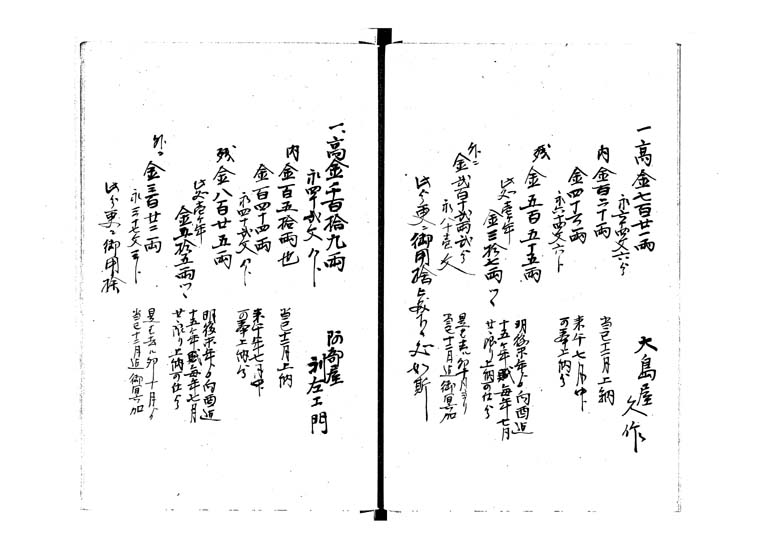 一高金七百廿二両
永六十四文六分
大島屋
久作
内金百二十両
当巳十二月上納
金四十六両
永六十四文六分
来午七月中
可奉上納分
残金五百五十五両
此処壱ケ年
金三拾七両ツヽ
明後未年ゟ向酉迄
十五ケ年賦毎年七月
廿限り上納可仕分
外ニ
金弐百十弐両弐分
永八十壱文
是者去ル卯十月ゟ
当巳十二月迄御冥加
此分更ニ御用捨
如斯
一高金千百拾九両
永四十弐文
阿部屋
利左エ門
内金百五拾両也
当巳十二月上納
金百四十四両
永四十弐文
来午年七月中
可奉上納分
残金八百廿五両
此処壱ケ年
金五拾五両ツヽ
明後未年ゟ向酉迄
十五ケ年賦毎年七月
廿限り上納可仕分
外ニ
金三百廿二両
永三十七文
是者去ル卯十月ゟ
当巳十二月迄御冥加
此分更ニ御用捨